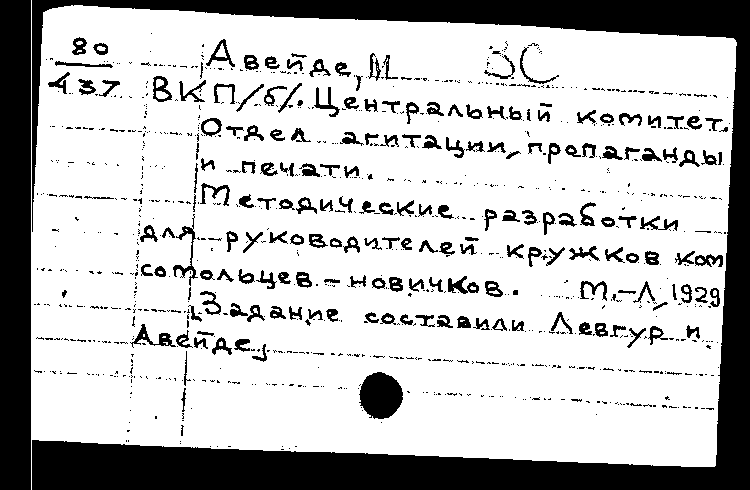 80
437
Авейде, М
ВС
ВКП/б/. Центральный комитет.
Отдел агитации, пропаганды
и печати.
Методические разработки
для руководителей кружков ком
сомольцев-новичков. М.-Л, 1929
[Задание составили Левгур и
Авейде]